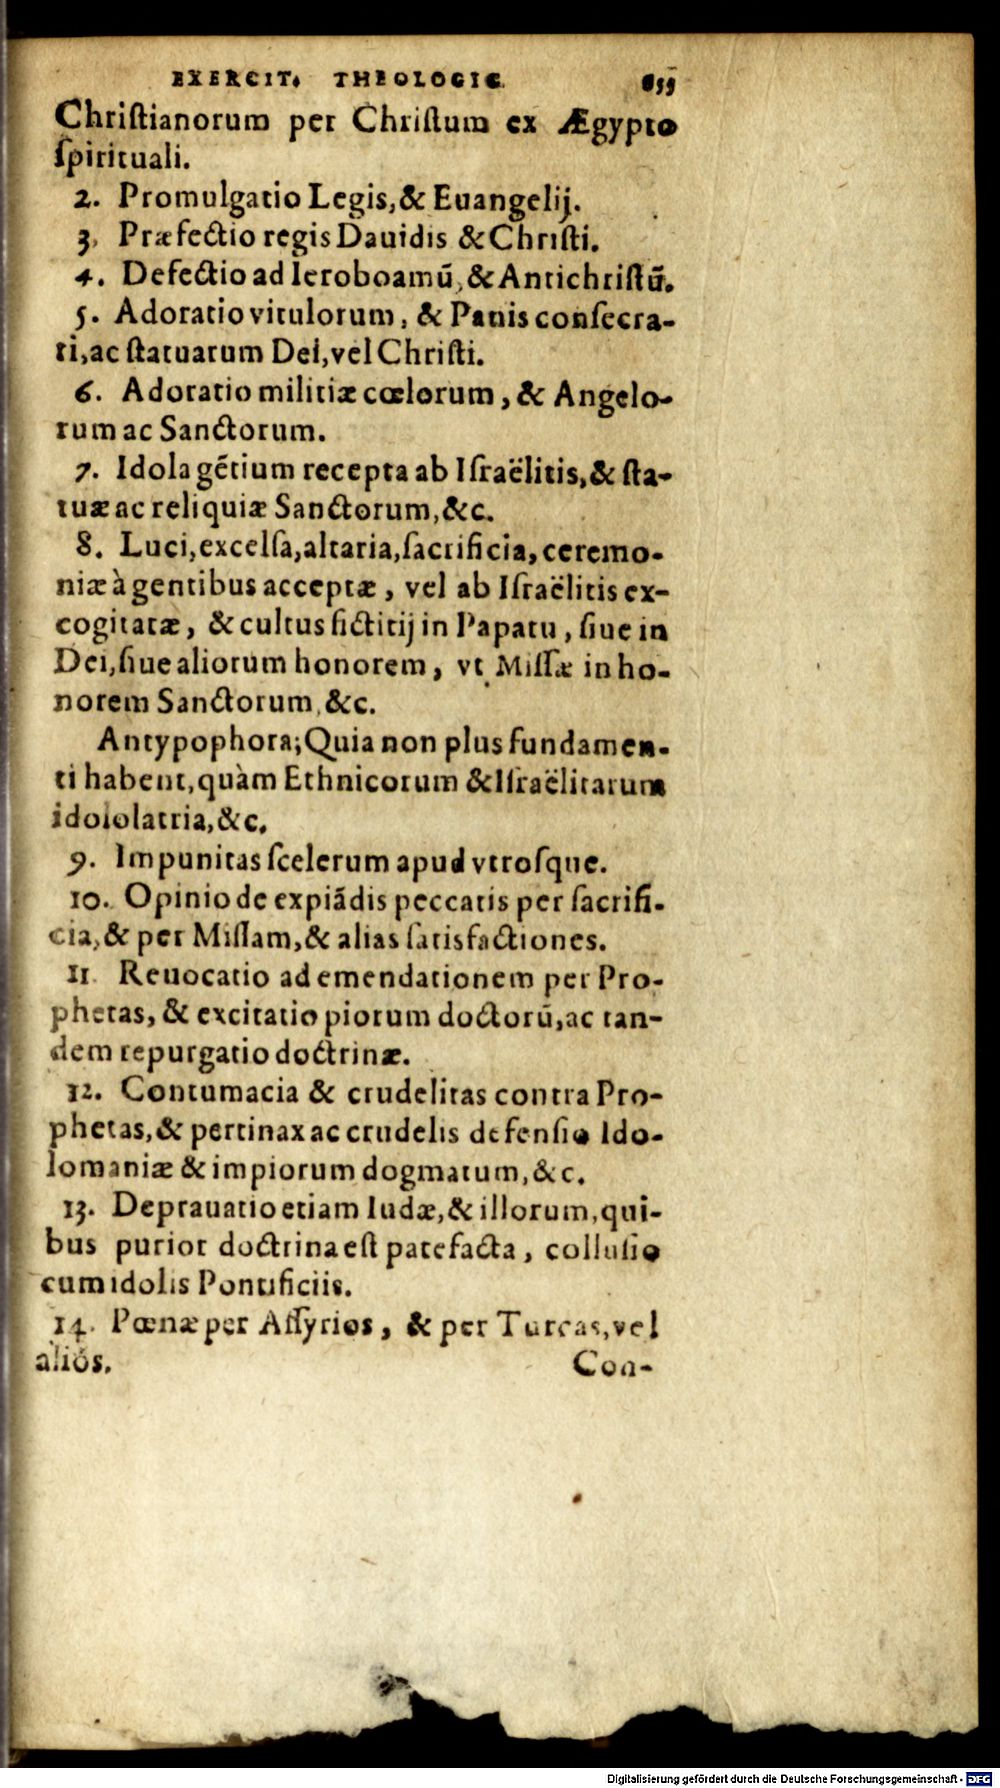 EXERCIT. THEOLOGIC. 655
Chriſtianorum per Chriſtum ex Ægypto
ſpirituali.
2. Promulgatio Legis, & Euangelij.
3. Præfectio regis Dauidis & Chriſti.
4. Defectio ad Ieroboamũ, & Antichriſtũ.
5. Adoratio vitulorum, & Panis conſecra-
ti, ac ſtatuarum Dei, vel Chriſti.
6. Adoratio militiæ cœlorum, & Angelo-
rum ac Sanctorum.
7. Idola gẽtium recepta ab Iſraëlitis, & ſta-
tuæ ac reliquiæ Sanctorum, &c.
8. Luci, excelſa, altaria, ſacrificia, ceremo-
niæ à gentibus acceptæ, vel ab Iſraëlitis ex-
cogitatæ, & cultus fictitij in Papatu, ſiue in
Dei, ſiue aliorum honorem, vt Miſſæ in ho-
norem Sanctorum, &c.
Antypophora; Quia non plus fundamen-
ti habent, quàm Ethnicorum & Iſraëlitarum
idololatria, &c.
9. Impunitas ſcelerum apud vtroſque.
10. Opinio de expiãdis peccatis per ſacrifi-
cia, & per Miſſam, & alias ſatisfactiones.
11. Reuocatio ad emendationem per Pro-
phetas, & excitatio piorum doctorũ, ac tan-
dem repurgatio doctrinæ.
12. Contumacia & crudelitas contra Pro-
phetas, & pertinax ac crudelis defenſio Ido-
lomaniæ & impiorum dogmatum, &c.
13. Deprauatio etiam Iudæ, & illorum, qui-
bus purior doctrina eſt patefacta, colluſio
cum idolis Pontificiis.
14. Pœnæ per Aſſyrios, & per Turcas, vel
alios. Con-
Digitalisierung gefördert durch die Deutsche Forschungsgemeinschaft - DFG